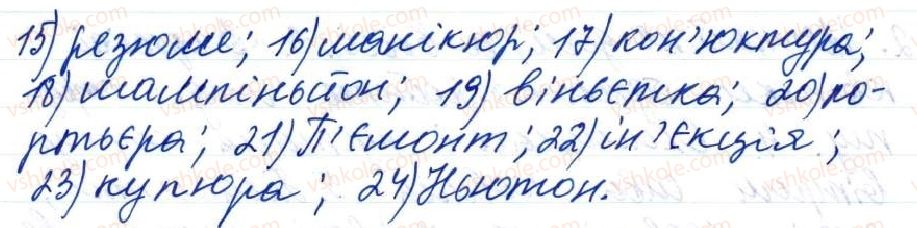 15) резюме; 16) манікюр; 17) кон'юктура;
18) шампіньйон; 19) віньєтка; 20) по-
ртьєра; 21) П'ємонт; 22) ін'єкція;
23) купюра; 24) Ньютон.